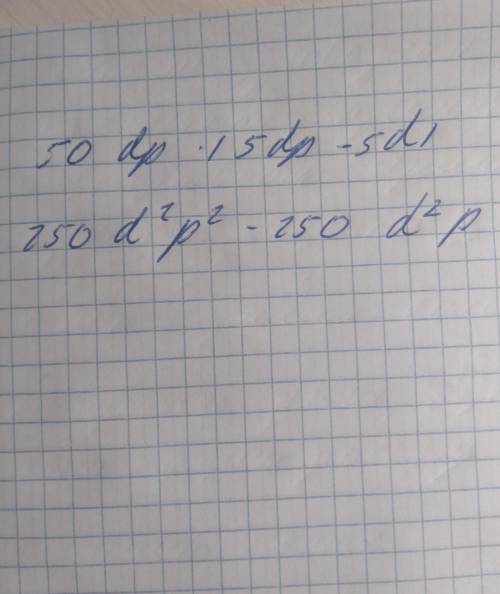 50 dp · (5dp - 5d)
250 d²p² - 250 d²p